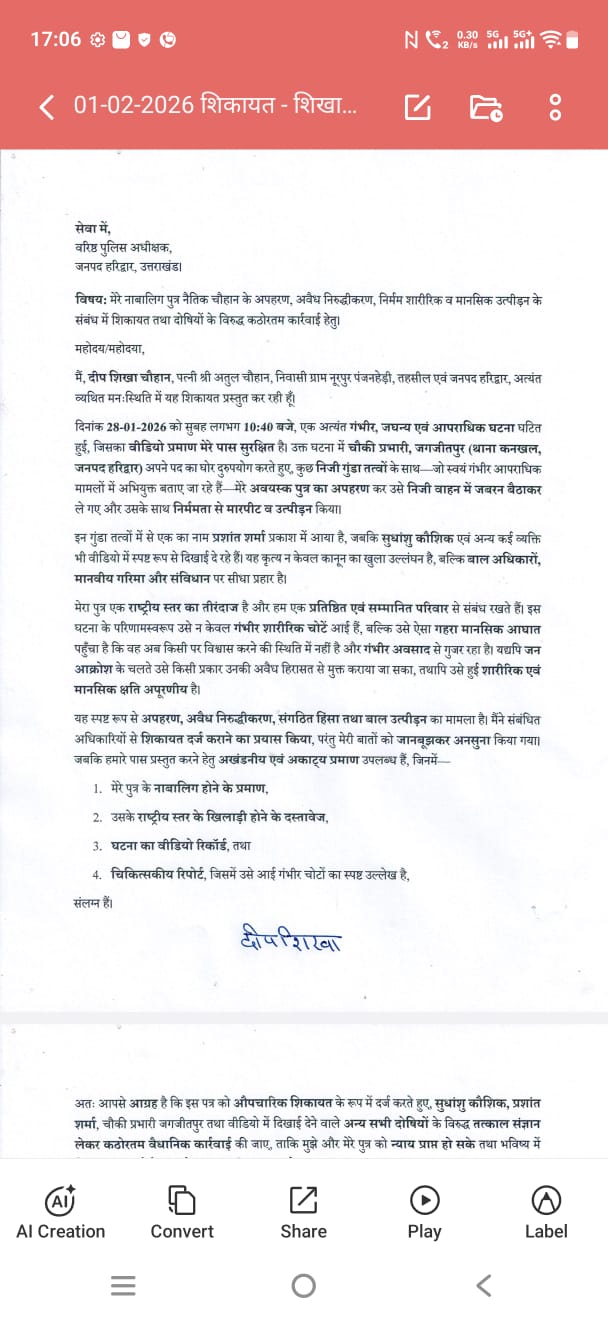 17:06
N 2 0.30 KB/s 5G 5G+
01-02-2026 शिकायत - शिखा...
सेवा में,
वरिष्ठ पुलिस अधीक्षक,
जनपद हरिद्वार, उत्तराखंड।
विषय: मेरे नाबालिग पुत्र नैतिक चौहान के अपहरण, अवैध निरुद्धीकरण, निर्मम शारीरिक व मानसिक उत्पीड़न के
संबंध में शिकायत तथा दोषियों के विरुद्ध कठोरतम कार्रवाई हेतु।
महोदय/महोदया,
मैं, दीप शिखा चौहान, पत्नी श्री अतुल चौहान, निवासी ग्राम नूरपुर पंजनहेड़ी, तहसील एवं जनपद हरिद्वार, अत्यंत
व्यथित मनःस्थिति में यह शिकायत प्रस्तुत कर रही हूँ।
दिनांक 28-01-2026 को सुबह लगभग 10:40 बजे, एक अत्यंत गंभीर, जघन्य एवं आपराधिक घटना घटित
हुई, जिसका वीडियो प्रमाण मेरे पास सुरक्षित है। उक्त घटना में चौकी प्रभारी, जगजीतपुर (थाना कनखल,
जनपद हरिद्वार) अपने पद का घोर दुरुपयोग करते हुए, कुछ निजी गुंडा तत्वों के साथ—जो स्वयं गंभीर आपराधिक
मामलों में अभियुक्त बताए जा रहे हैं—मेरे अवयस्क पुत्र का अपहरण कर उसे निजी वाहन में जबरन बैठाकर
ले गए और उसके साथ निर्ममता से मारपीट व उत्पीड़न किया।
इन गुंडा तत्वों में से एक का नाम प्रशांत शर्मा प्रकाश में आया है, जबकि सुधांशु कौशिक एवं अन्य कई व्यक्ति
भी वीडियो में स्पष्ट रूप से दिखाई दे रहे हैं। यह कृत्य न केवल कानून का खुला उल्लंघन है, बल्कि बाल अधिकारों,
मानवीय गरिमा और संविधान पर सीधा प्रहार है।
मेरा पुत्र एक राष्ट्रीय स्तर का तीरंदाज है और हम एक प्रतिष्ठित एवं सम्मानित परिवार से संबंध रखते हैं। इस
घटना के परिणामस्वरूप उसे न केवल गंभीर शारीरिक चोटें आई हैं, बल्कि उसे ऐसा गहरा मानसिक आघात
पहुँचा है कि वह अब किसी पर विश्वास करने की स्थिति में नहीं है और गंभीर अवसाद से गुजर रहा है। यद्यपि जन
आक्रोश के चलते उसे किसी प्रकार उनकी अवैध हिरासत से मुक्त कराया जा सका, तथापि उसे हुई शारीरिक एवं
मानसिक क्षति अपूरणीय है।
यह स्पष्ट रूप से अपहरण, अवैध निरुद्धीकरण, संगठित हिंसा तथा बाल उत्पीड़न का मामला है। मैंने संबंधित
अधिकारियों से शिकायत दर्ज कराने का प्रयास किया, परंतु मेरी बातों को जानबूझकर अनसुना किया गया।
जबकि हमारे पास प्रस्तुत करने हेतु अखंडनीय एवं अकाट्य प्रमाण उपलब्ध हैं, जिनमें—
1. मेरे पुत्र के नाबालिग होने के प्रमाण,
2. उसके राष्ट्रीय स्तर के खिलाड़ी होने के दस्तावेज,
3. घटना का वीडियो रिकॉर्ड, तथा
4. चिकित्सकीय रिपोर्ट, जिसमें उसे आई गंभीर चोटों का स्पष्ट उल्लेख है,
संलग्न हैं।
दीपशिखा
अतः आपसे आग्रह है कि इस पत्र को औपचारिक शिकायत के रूप में दर्ज करते हुए, सुधांशु कौशिक, प्रशांत
शर्मा, चौकी प्रभारी जगजीतपुर तथा वीडियो में दिखाई देने वाले अन्य सभी दोषियों के विरुद्ध तत्काल संज्ञान
लेकर कठोरतम वैधानिक कार्रवाई की जाए, ताकि मुझे और मेरे पुत्र को न्याय प्राप्त हो सके तथा भविष्य में
AI
AI Creation Convert Share Play Label